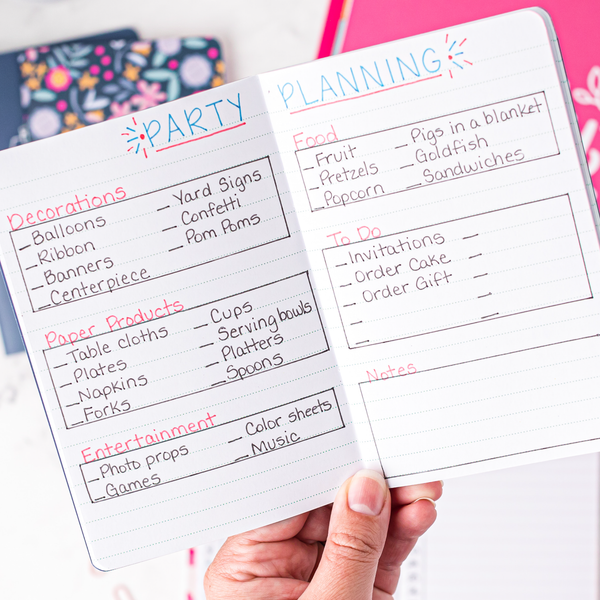 PARTY PLANNING
Decorations
_Balloons
_Ribbon
_Banners
_Centerpiece
_Yard Signs
_Confetti
_Pom Poms
Paper Products
_Table cloths
_Plates
_Napkins
_Forks
_Cups
_Serving bowls
_Platters
_Spoons
Entertainment
_Photo props
_Games
_Color sheets
_Music
Food
_Fruit
_Pretzels
_Popcorn
_Pigs in a blanket
_Goldfish
_Sandwiches
To Do
_Invitations
_Order Cake
_Order Gift
Notes